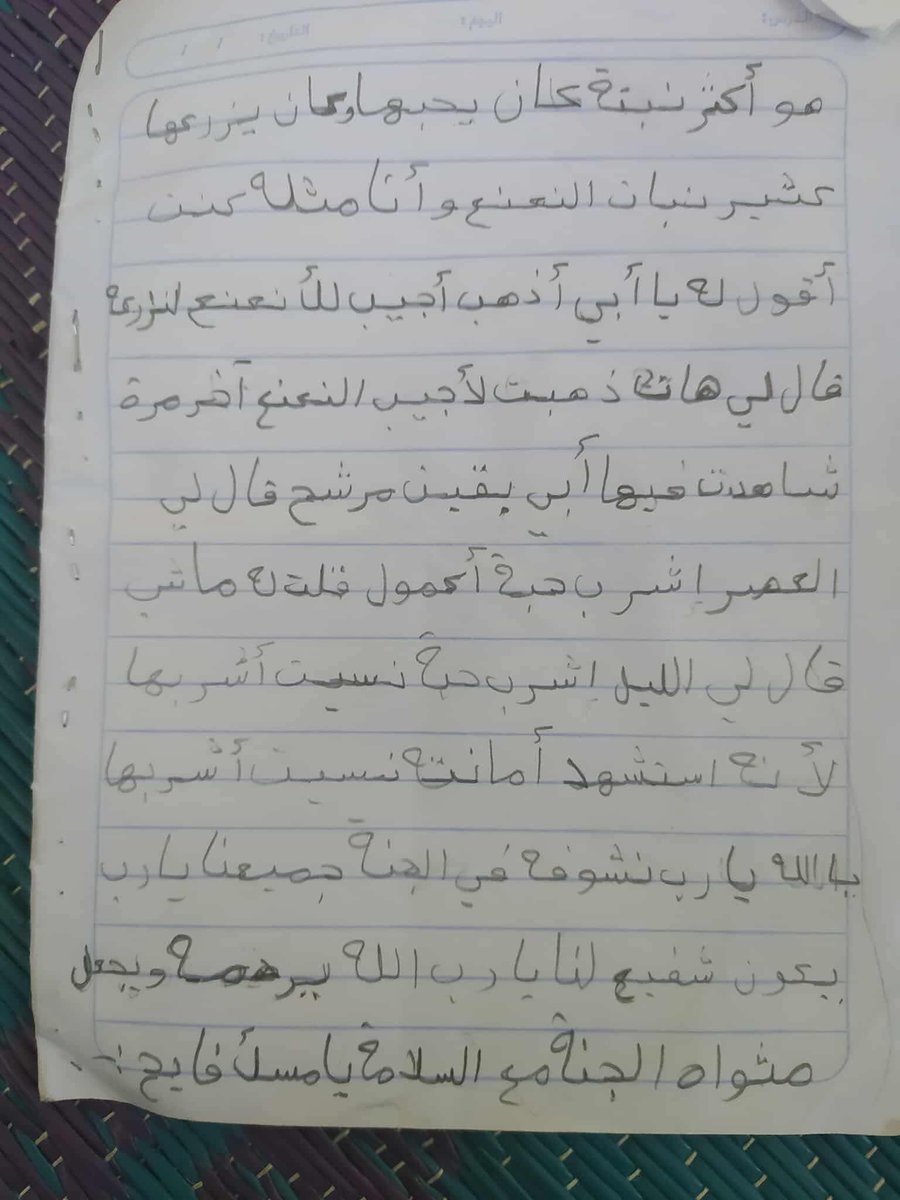 الدرس: اليوم: التاريخ: / /
هو أكثر نبتة كان يحبها وكان يزرعها
كثير نبات النعنع و أنا مثله كنت
أقول له يا أبي أذهب أجيب للأ نعنع لنزرعه
قال لي هاته ذهبت لأجيب النعنع آخر مرة
شاهدت فيها أبي بقين مرشح قال لي
العصر إشرب حبة أكمول قلت له ماشي
قال لي الليل إشرب حبة نسيت أشربها
لأنه استشهد أمانته نسيت أشربها
يا الله يا رب نشوفه في الجنة جميعنا يا رب
يكون شفيع لنا يا رب الله يرحمه ويجعل
مثواه الجنة مع السلامة يا مسك فايح